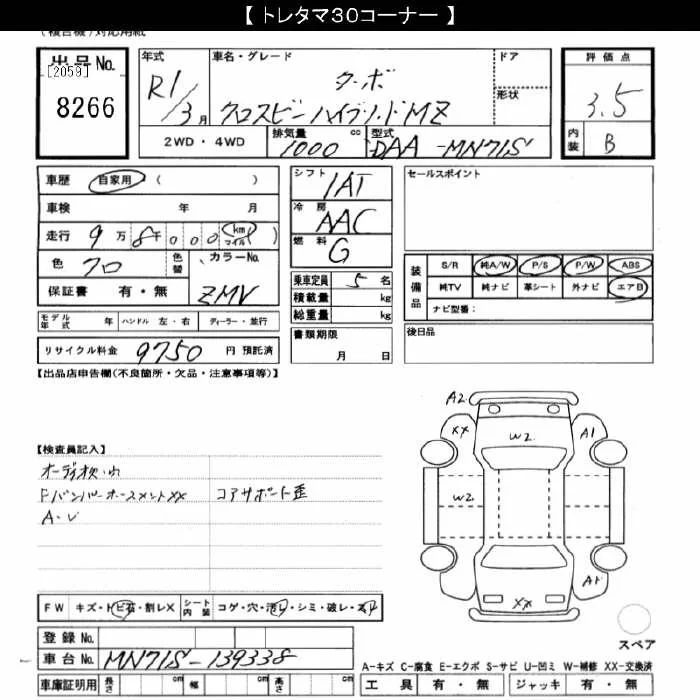 【 トレタマ30コーナー 】
(複合機)対応用紙
出品No.
[2059]
8266
年式
R1/3月
車名・グレード
ターボ
クロスビー ハイブリッドMZ
ドア
形状
評価点
3.5
内装 B
2WD・4WD
排気量 cc
1000
型式
DAA-MN71S
車歴 自家用 ( )
車検 年 月
走行 9万 8千 000 (km マイル)
色 70
色替
カラーNo.
ZMV
保証書 有・無
モデル年式 年
ハンドル 左・右
ディーラー・並行
リサイクル料金 9750 円 預託済
シフト
IAT
冷房
AAC
燃料
G
乗車定員 5名
積載量 kg
総重量 kg
書類期限
月 日
セールスポイント
装備品
S/R 純A/W P/S P/W ABS
純TV 純ナビ 革シート 外ナビ エアB
ナビ型番:
後日品
【出品店申告欄(不良箇所・欠品・注意事項等)】
【検査員記入】
Fバンパーホースメントxx
コアサポート歪
A2
XX
W2
A1
W2
A1
XX
スペア
FW キズ・トビ石・割レX
シート内装 コゲ・穴・汚レ・シミ・破レ・スレ
登録No.
車台No. MN71S-139338
車庫証明用 長さ cm 幅 cm 高さ cm
A-キズ C-腐食 E-エクボ S-サビ U-凹ミ W-補修 XX-交換済
工具 有・無 ジャッキ 有・無